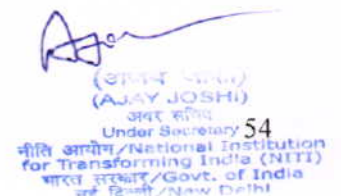 (अजय जोशी)
(AJAY JOSHI)
अवर सचिव
Under Secretary 54
नीति आयोग/National Institution
for Transforming India (NITI)
भारत सरकार/Govt. of India
नई दिल्ली/New Delhi